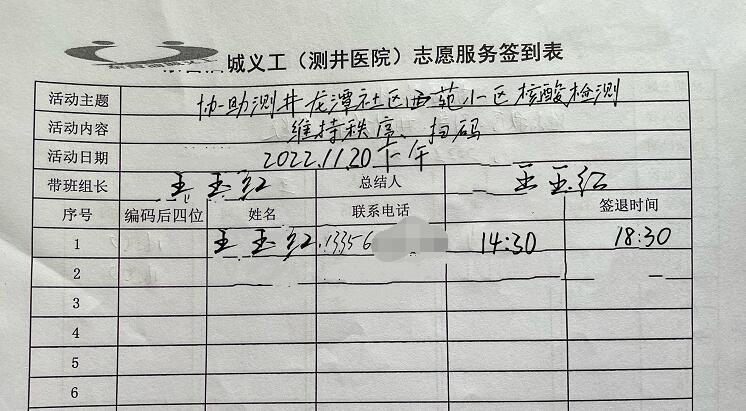 城义工（测井医院）志愿服务签到表
活动主题 协助测井龙潭社区西苑小区核酸检测
活动内容 维持秩序、扫码
活动日期 2022.11.20 下午
带班组长 王玉红 总结人 王玉红
序号 编码后四位 姓名 联系电话 签退时间
1 王玉红 13356 14:30 18:30
2
3
4
5
6